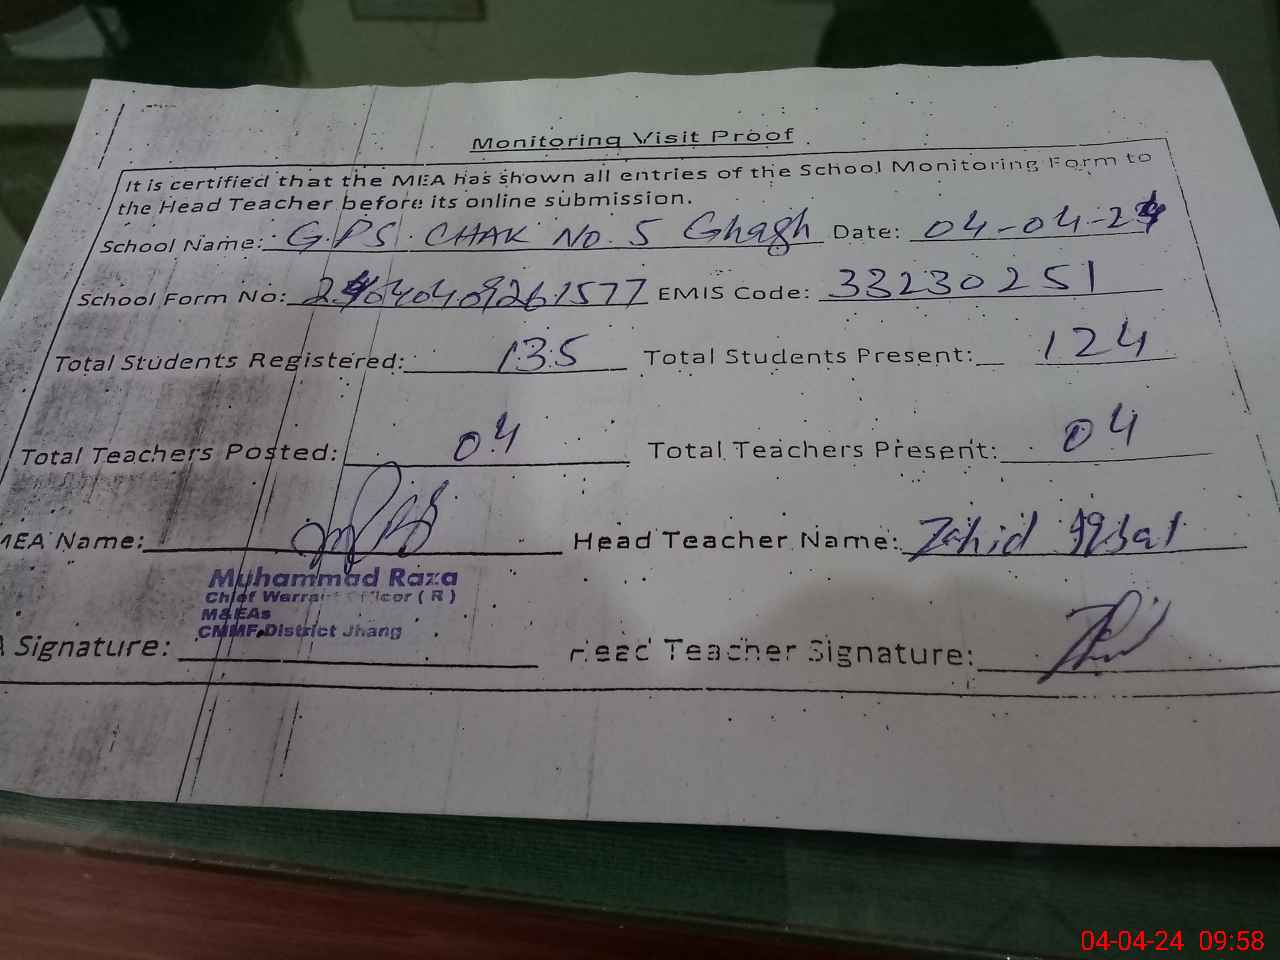 Monitoring Visit Proof
It is certified that the MEA has shown all entries of the School Monitoring Form to
the Head Teacher before its online submission.
School Name: G.P.S. CHAK No. 5 Ghagh Date: 04-04-24
School Form No: 24040409261577 EMIS Code: 33230251
Total Students Registered: 135 Total Students Present: 124
Total Teachers Posted: 04 Total Teachers Present: 04
MEA Name: Head Teacher Name: Zahid Iqbal
Muhammad Raza
Chief Warrant Officer ( R )
M&EAs
CMMF,District Jhang
A Signature: Head Teacher Signature:
04-04-24 09:58